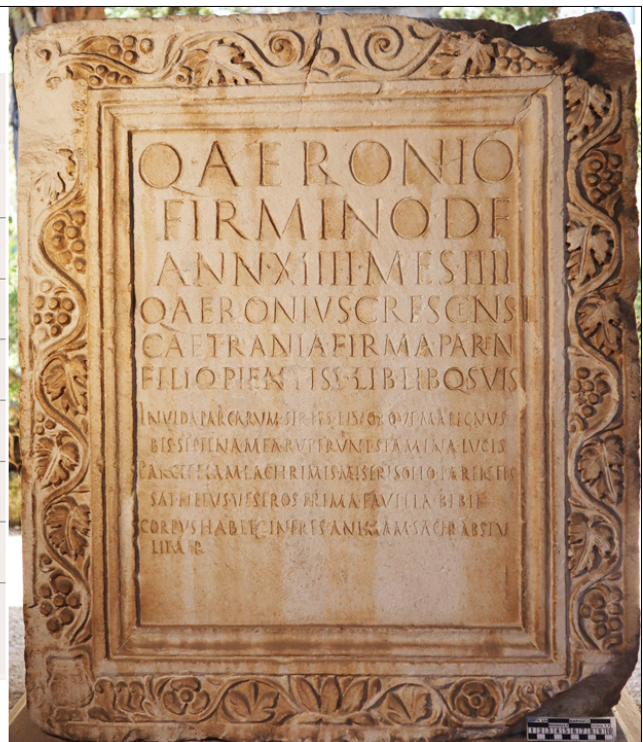 Q·AERONIO
FIRMINO·DF
ANN·XIIII·MES·IIII
Q AERONIVS CRESCENS
CAETRANIA FIRMA PAREN
FILIO PIENTISS·LIB LIBQ SVIS
INVIDA PARCARVM SERIES LIVORQVE MALIGNVS
BIS SEPTENA MEA RVPERVNT STAMINA LVCIS
PARCITE IAM LACHRIMIS MISERI PARENTES
SAT FLETVS VESTROS PRIMA FAVILLA BIBIT
CORPVS HABET CINERES ANIMAM SACR ABSTV
LIT